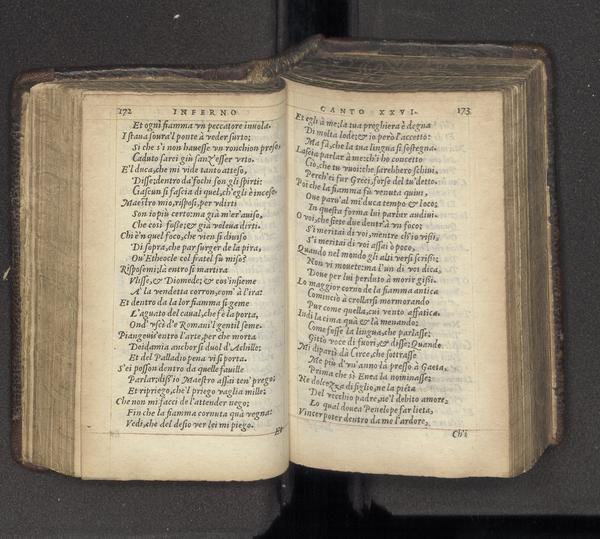 172 INFERNO
Et ogni fiamma vn peccatore inuola.
I staua soura'l ponte à veder surto;
Si che s'i non hauesse vn ronchion preso,
Caduto sarei giu sanz'esser vrto.
E'l duca, che mi vide tanto atteso,
Disse; dentro da' fochi son gli spirti:
Ciascun si fascia di quel, ch'egli è inceso.
Maestro mio, risposi, per vdirti
Son io più certo: ma già m'er'auiso,
Che così fosse; & già voleua dirti.
Chi è'n quel foco, che vien si diuiso
Di sopra, che par surger de la pira,
Ou'Etheocle col fratel fu miso?
Risposemi; là entro si martira
Vlisse, & Diomede; & cos'insieme
A' la vendetta corron, com' à l'ira:
Et dentro da la lor fiamma si geme
L'aguato del caual, che fe la porta,
Ond' vscì de' Romani'l gentil seme.
Piangeuis'entro l'arte, per che morta
Deidamia anchor si duol d'Achille;
Et del Palladio pena vi si porta.
S'ei posson dentro da quelle fauille
Parlar; diss'io Maestro assai ten' prego;
Et ripriego, che'l priego vaglia mille;
Che non mi facci de l'attender nego;
Fin che la fiamma cornuta quà vegna:
Vedi, che del desio ver lei mi piego.
Et
CANTO XXVI. 173
Et egli à me; la tua preghiera è degna
Di molta lode; & io però l'accetto:
Ma fà, che la tua lingua si sostegna.
Lascia parlar à me: ch'i ho concetto
Ciò, che tu vuoi: che sarebbero schiui,
Perch'ei fur Greci, forse del tu' detto.
Poi che la fiamma fù venuta quiui,
Oue paru'al mi' duca tempo & loco;
In questa forma lui parlar audiui.
O voi, che siete due dentr'à vn foco;
S'i meritai di voi, mentre ch'io vissi,
S'i meritai di voi assai ò poco,
Quando nel mondo gli alti versi scrissi;
Non vi mouete: ma l'un di voi dica,
Doue per lui perduto à morir gissi.
Lo maggior corno de la fiamma antica
Cominciò à crollarsi mormorando
Pur come quella, cui vento affatica.
Indi la cima quà & là menando;
Come fosse la lingua, che parlasse;
Gittò voce di fuori, & disse; Quando
Mi diparti dà Circe, che sottrasse
Me più d'vn'anno là presso à Gaeta,
Prima che sì Enea la nominasse;
Ne dolcezza di figlio, ne la pièta
Del vecchio padre, ne'l debito amore,
Lo qual douea Penelope far lieta;
Vincer poter dentro da me l'ardore,
Ch'i